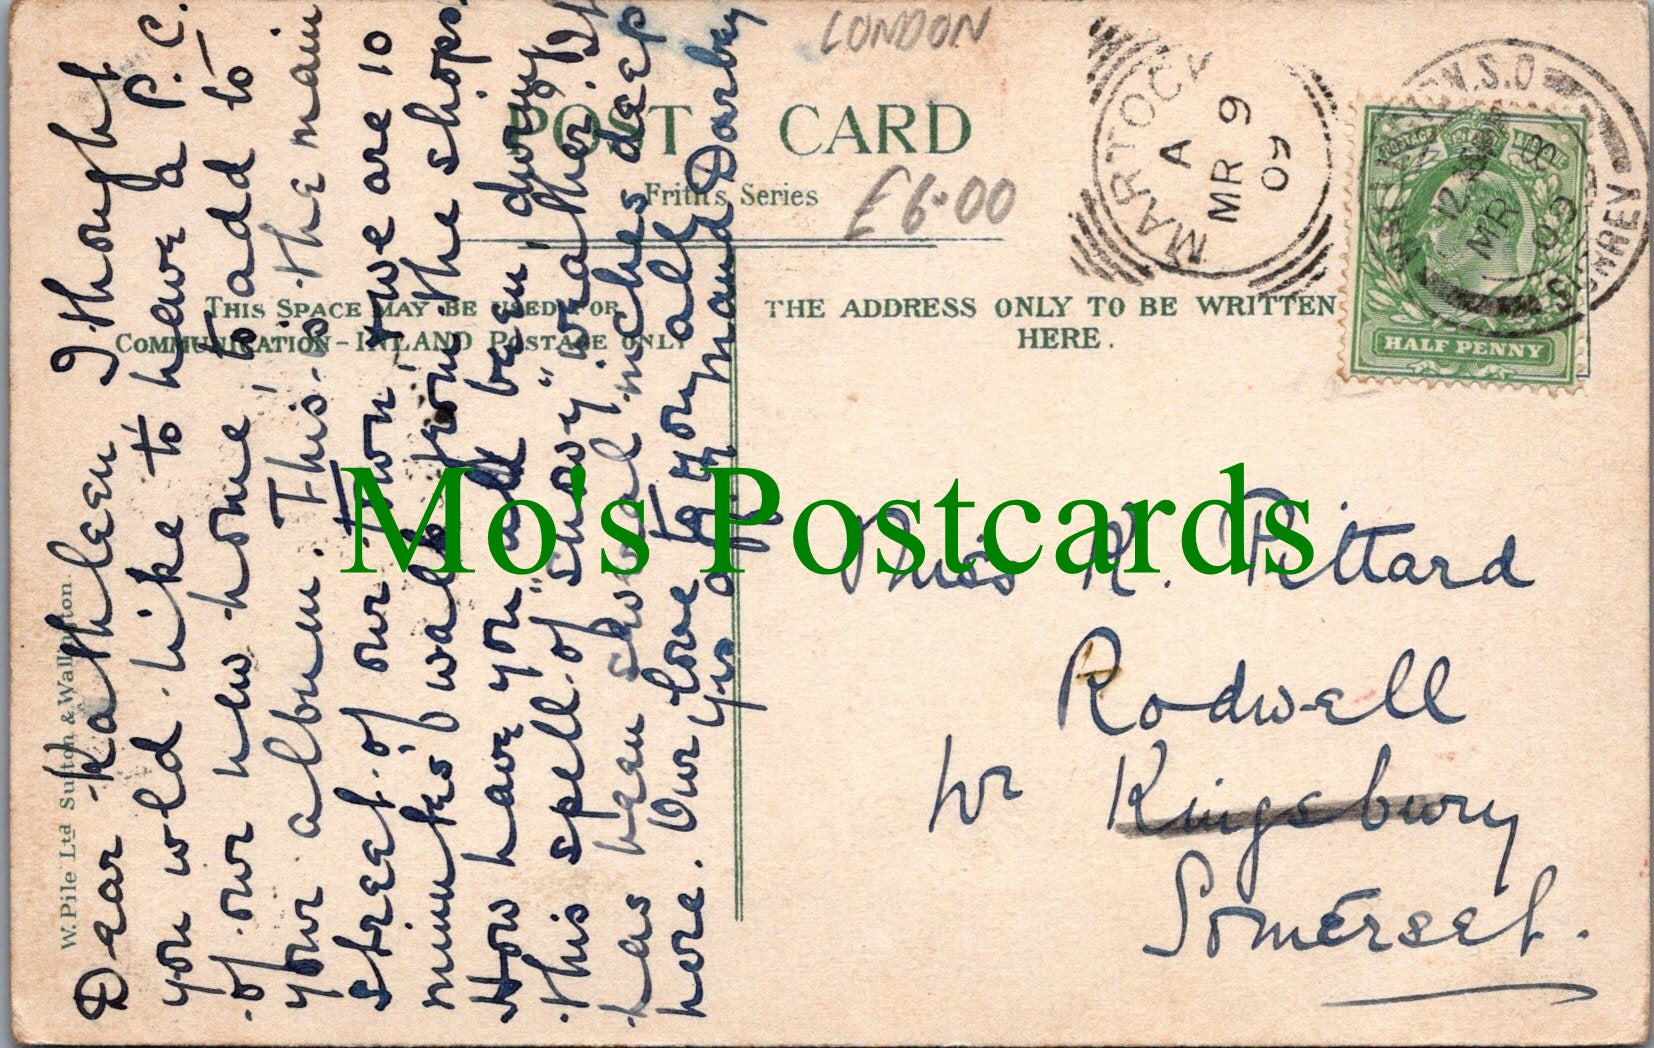 LONDON
POST CARD
Frith's Series
£6.00
THIS SPACE MAY BE USED FOR
COMMUNICATION – INLAND POSTAGE ONLY
THE ADDRESS ONLY TO BE WRITTEN
HERE.
MARTOCK
A
MR 9
09
N.S.O
SURREY
MR 8
09
HALF PENNY
W. Pile Ltd Sutton & Wallington
Dear Kathleen I thought
you wld like to have a P.C.
of our new home, to add to
your album. This is the main
street of our town & we are 10
minutes' walk from the shops.
How have you all been during
this spell of "snowy" weather. It
has been several inches deep
here. Our love to you all
Yrs affly Maud Darby
Miss K. Pittard
Rodwell
Nr Kingsbury
Somerset.
Mo's Postcards